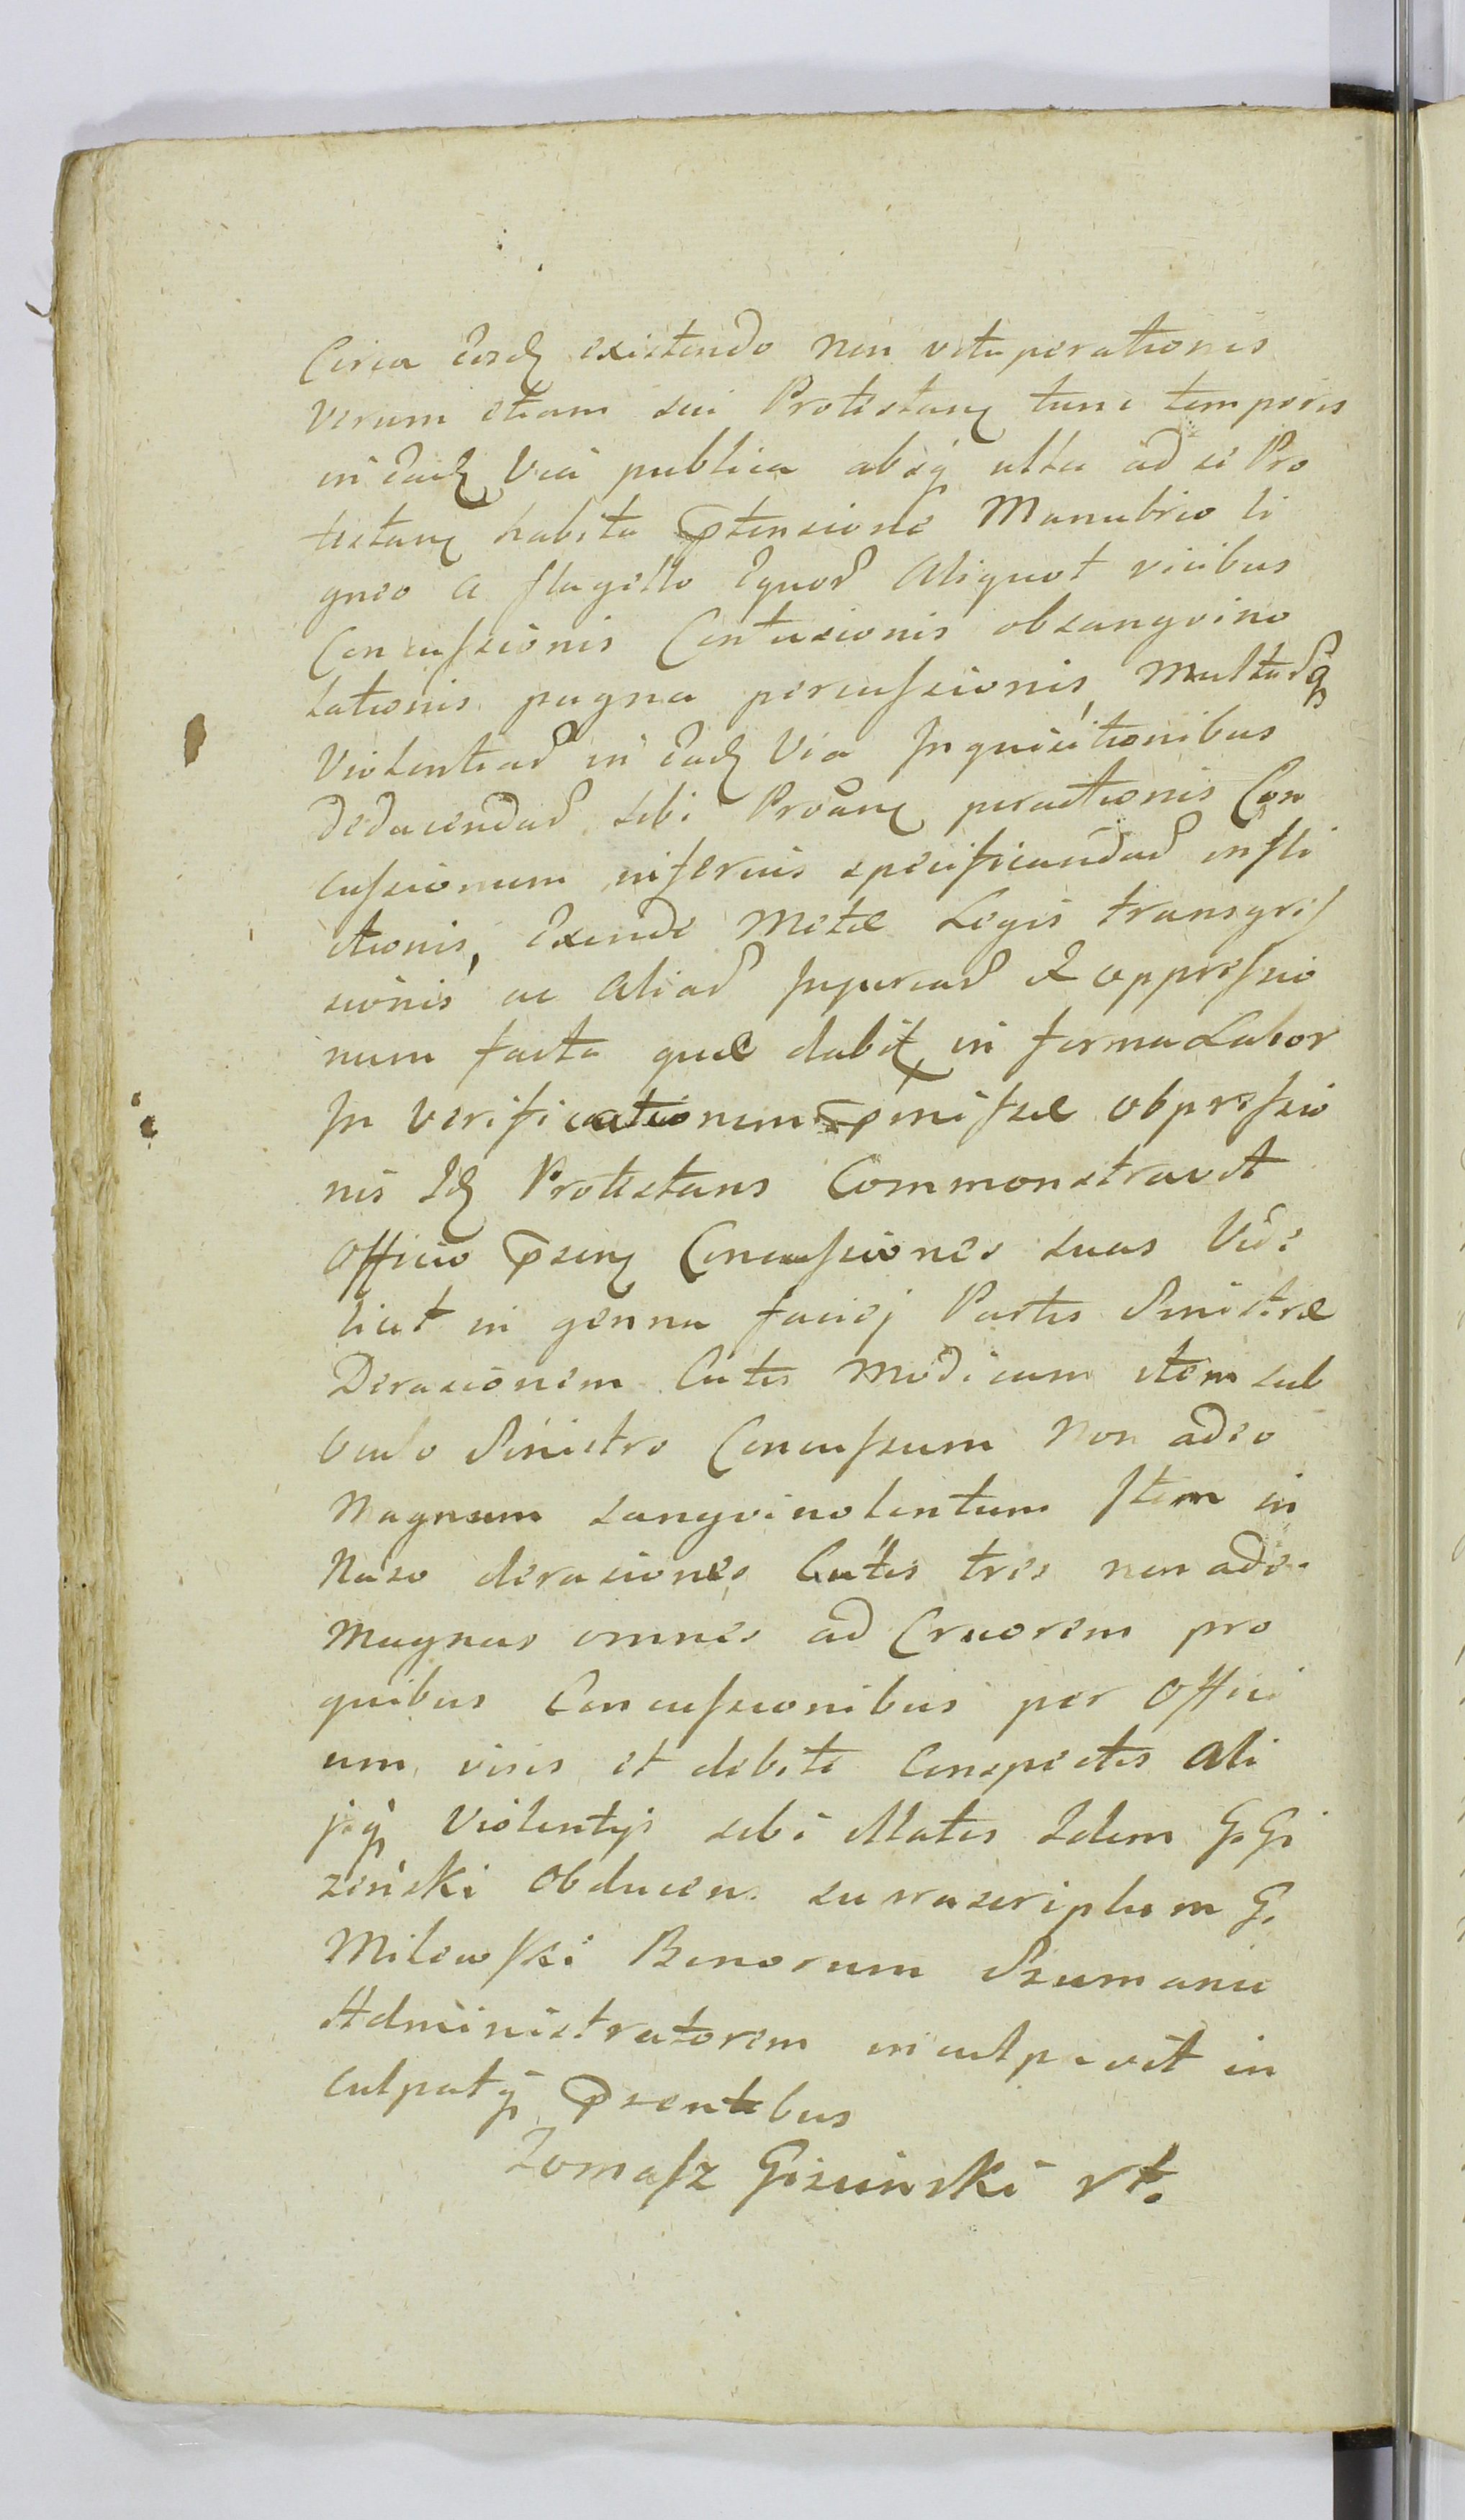 Circa existendo non vituperationis
verum etiam sui Protestans tunc temporis
in Via publica absq ulla ad se Pro
testans habita ptensione Manubrio li
gneo a flagello Equor Aliquot vicibus
Concussionis Contusionis obsangvino
lationis pugna percussionis, Multarq
Violentiar in Via Inquisitionibus
deducendar sibi peractionis Con
cussionum inferius specificandar infli
ctionis, Exinde Metæ Legis transgres
sionis ac Aliar Injuriar & oppressio
num facta quæ dabit, in forma Latior
In verificationem pmissæ obpressio
nis Protestans Commonstravit
Officio psen Concussiones suas Vide
licet in genna faciej Partis Sinistræ
Derasionem Cutis Modicam item sub
Oculo Sinistro Concussum Non adeo
Magnum sangvinolentum Item in
Naso derasiones Cutis tres non adeo
Magnas omnes ad Cruorem pro
quibus Concussionibus per Offici
um visis et debite Conspectis Ali
jsq Violentijs sibi illatis Idem G. Gi
ziński Obducen. suprascriptum G.
Milewski Bonorum Szumanie
Administratorem inculpavit in
culpatq psentibus
Tomasz Giziinski